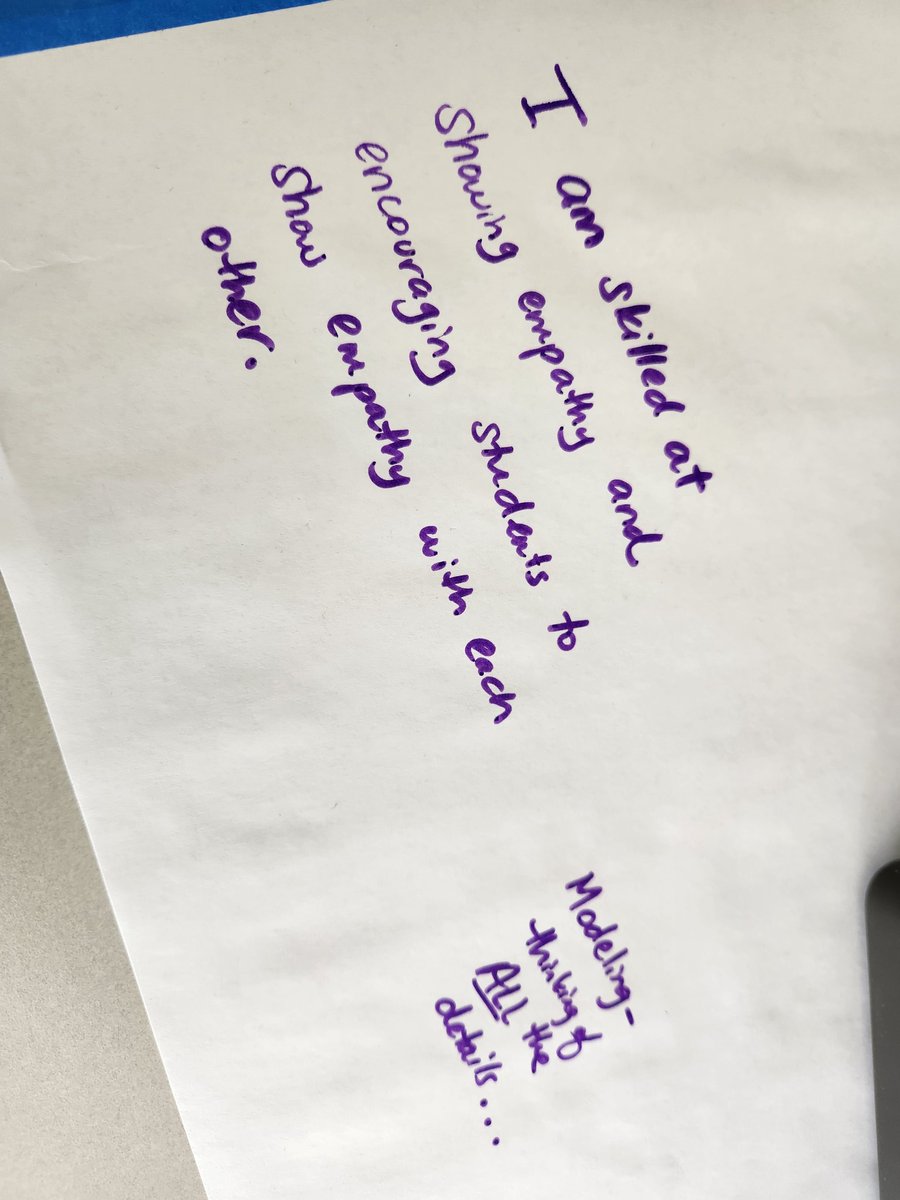 I am skilled at
showing empathy and
encouraging students to
show empathy with each
other.
Modeling-
thinking of
ALL the
details...